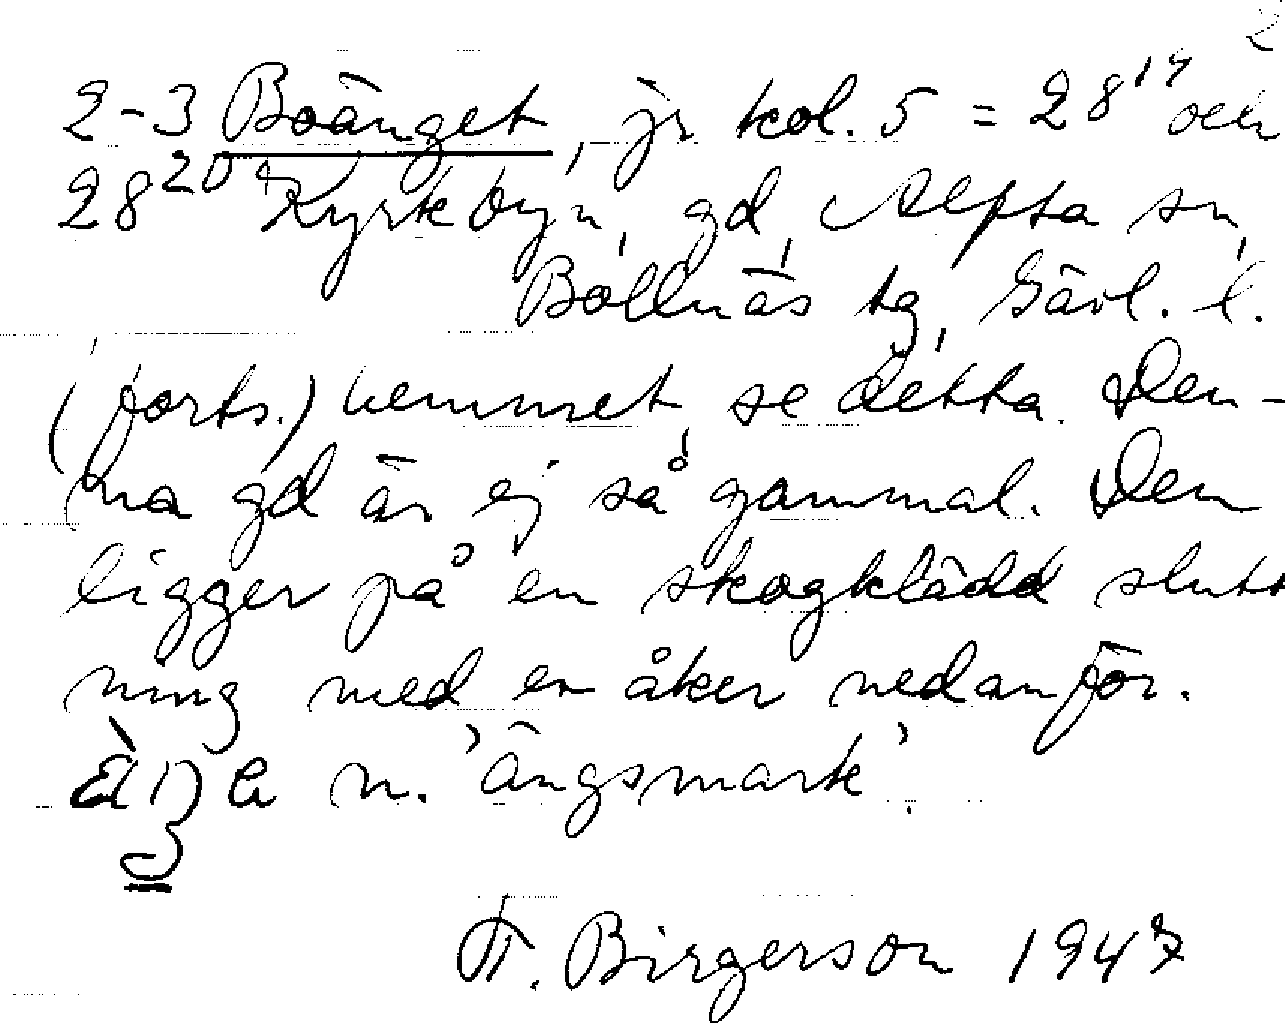 2
2-3 Boänget, jr kol. 5 = 28¹⁴ och
28²⁰ Kyrkbyn, gd, Alfta sn,
Bollnäs tg, Gävl. l.
(forts.) hemmet, se detta. Den-
na gd är ej så gammal. Den
ligger på en skogklädd slutt
ning med en åker nedanför.
n. 'ängsmark'.
Birgerson 1947